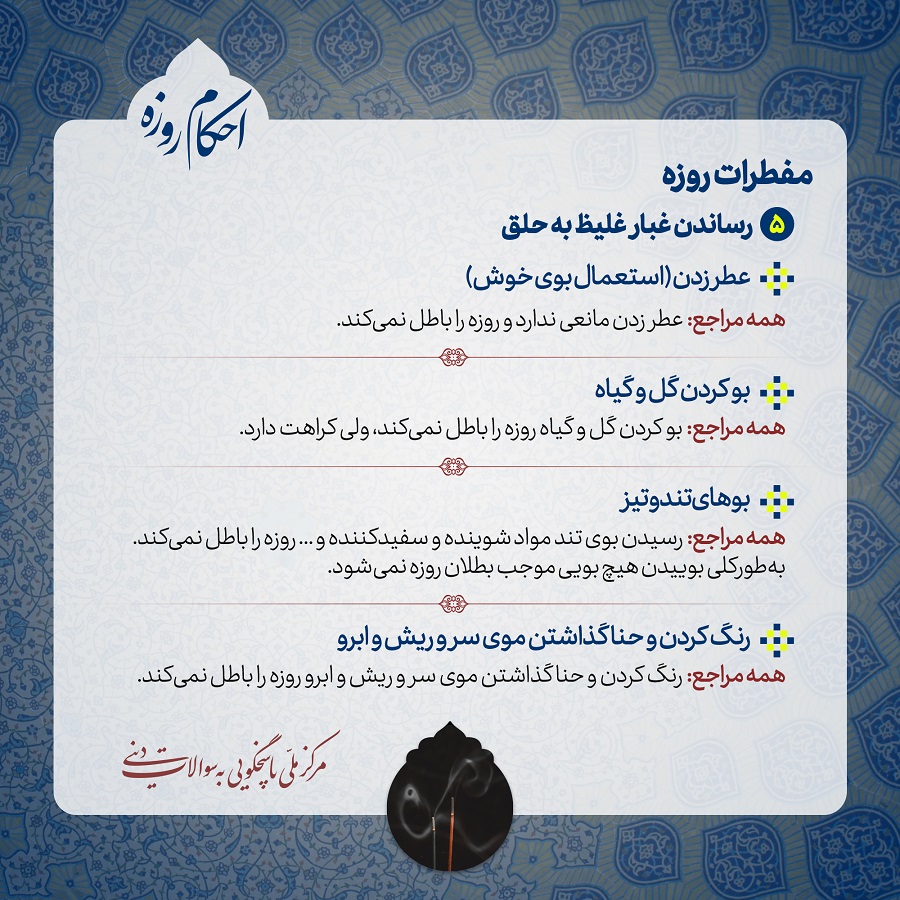 احکام روزه
مفطرات روزه
۵ رساندن غبار غلیظ به حلق
عطر زدن (استعمال بوی خوش)
همه مراجع: عطر زدن مانعی ندارد و روزه را باطل نمی‌کند.
بو کردن گل و گیاه
همه مراجع: بو کردن گل و گیاه روزه را باطل نمی‌کند، ولی کراهت دارد.
بوهای تند و تیز
همه مراجع: رسیدن بوی تند مواد شوینده و سفیدکننده و ... روزه را باطل نمی‌کند.
به‌طور‌کلی بوییدن هیچ بویی موجب بطلان روزه نمی‌شود.
رنگ کردن و حنا گذاشتن موی سر و ریش و ابرو
همه مراجع: رنگ کردن و حنا گذاشتن موی سر و ریش و ابرو روزه را باطل نمی‌کند.
مرکز ملّی پاسخگویی به سوالات دینی